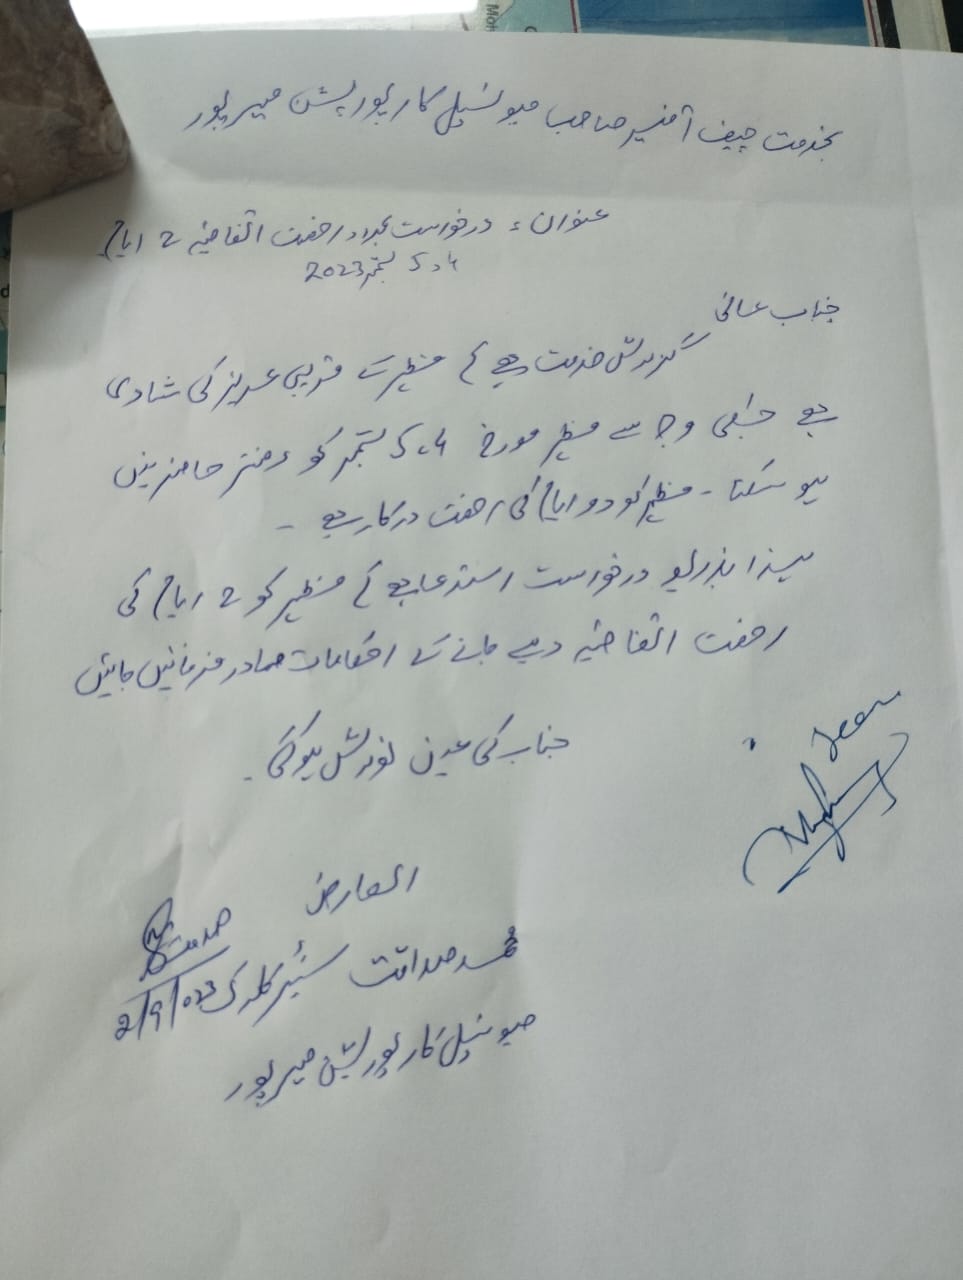 بخدمت چیف آفیسر صاحب میونسپل کارپوریشن میرپور
عنوان: درخواست بمراد رخصت اتفاقیہ 2 ایام
4، 5 ستمبر 2023
جناب عالی
گزارش خدمت ہے کہ مظہر کے قریبی عزیز کی شادی
ہے جسکی وجہ سے مظہر مورخہ 4، 5 ستمبر کو دفتر حاضر نہیں
ہو سکتا - مظہر کو دو ایام کی رخصت درکار ہے -
لہذا بذریعہ درخواست استدعا ہے کہ مظہر کو 2 ایام کی
رخصت اتفاقیہ دیے جانے کے احکامات صادر فرمائیں جائیں
جناب کی عین نوازش ہو گی -
Seen
العارض
محمد صداقت سنیئر کلرک
2/9/023
میونسپل کارپوریشن میرپور